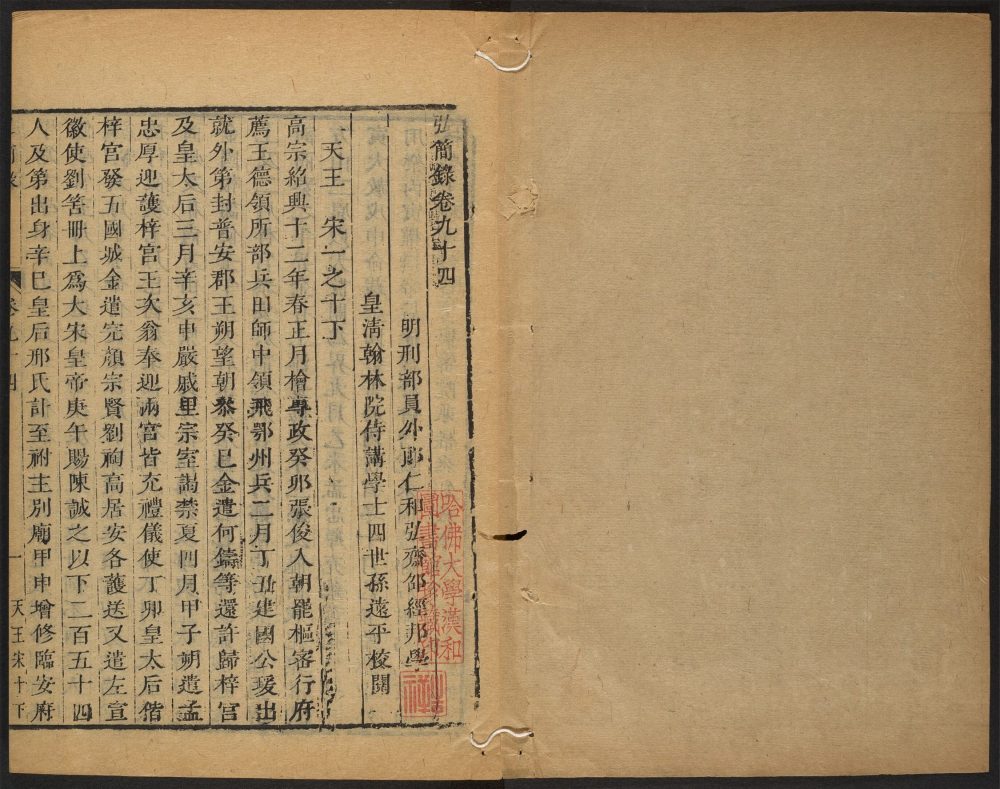 弘簡錄卷九十四
明刑部員外郎仁和弘齋邵經邦學
皇淸翰林院侍講學士四世孫遠平校閱
天王 宋一之十下
高宗紹興十二年春正月檜專政癸卯張俊入朝罷樞密行府
薦王德領所部兵田師中領飛鄂州兵二月丁丑建國公瑗出
就外第封普安郡王朔望朝叅癸巳金遣何鑄等還許歸梓宮
及皇太后三月辛亥申嚴戚里宗室謁禁夏四月甲子朔遣孟
忠厚迎護梓宮王次翁奉迎兩宮皆充禮儀使丁卯皇太后偕
梓宮發五國城金遣完顏宗賢劉祹高居安各護送又遣左宣
徽使劉筈冊上爲大宋皇帝庚午賜陳誠之以下二百五十四
人及第出身辛巳皇后邢氏訃至祔主別廟甲申增修臨安府
卷九十四
一
天王宋十下
哈佛大學漢和
圖書館珍藏印